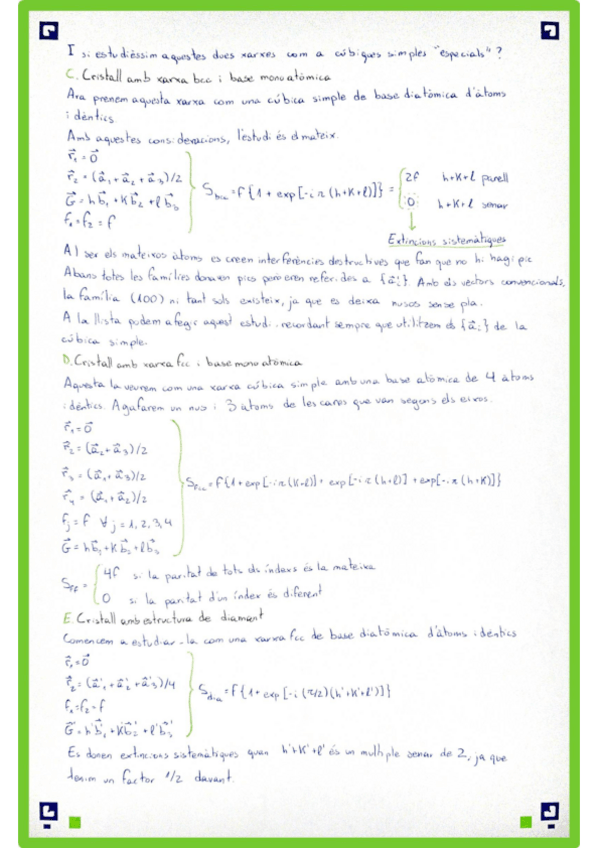 I si estudiéssim aquestes dues xarxes com a cúbiques simples "especials"?
C. Cristall amb xarxa bcc i base monoatòmica
Ara prenem aquesta xarxa com una cúbica simple de base diatòmica d'àtoms
idèntics.
Amb aquestes consideracions, l'estudi és el mateix.
r⃗₁ = 0⃗
r⃗₂ = (a⃗₁ + a⃗₂ + a⃗₃)/2
G⃗ = h b⃗₁ + K b⃗₂ + l b⃗₃
f₁ = f₂ = f
S_bcc = f{1 + exp[-iπ(h+K+l)]} = { 2f h+K+l parell
0 h+K+l senar
Extincions sistemàtiques
Al ser els mateixos àtoms es creen interferències destructives que fan que no hi hagi pic
Abans totes les famílies donaven pics però eren referides a {a⃗ᵢ'}. Amb els vectors convencionals,
la família (100) ni tant sols existeix, ja que es deixa nusos sense pla.
A la llista podem afegir aquest estudi, recordant sempre que utilitzem els {a⃗ᵢ} de la
cúbica simple.
D. Cristall amb xarxa fcc i base monoatòmica
Aquesta la veurem com una xarxa cúbica simple amb una base atòmica de 4 àtoms
idèntics. Agafarem un nus i 3 àtoms de les cares que van segons els eixos.
r⃗₁ = 0⃗
r⃗₂ = (a⃗₂ + a⃗₃)/2
r⃗₃ = (a⃗₁ + a⃗₃)/2
r⃗₄ = (a⃗₁ + a⃗₂)/2
fⱼ = f ∀ j = 1, 2, 3, 4
G⃗ = h b⃗₁ + K b⃗₂ + l b⃗₃
S_fcc = f{1 + exp[-iπ(K+l)] + exp[-iπ(h+l)] + exp[-iπ(h+K)]}
S_fcc = { 4f si la paritat de tots els índexs és la mateixa
0 si la paritat d'un índex és diferent
E. Cristall amb estructura de diamant
Comencem a estudiar-la com una xarxa fcc de base diatòmica d'àtoms idèntics
r⃗₁ = 0⃗
r⃗₂ = (a⃗'₁ + a⃗'₂ + a⃗'₃)/4
f₁ = f₂ = f
G⃗ = h' b⃗₁' + K' b⃗₂' + l' b⃗₃'
S_dia = f{1 + exp[-i(π/2)(h'+K'+l')]}
Es donen extincions sistemàtiques quan h'+K'+l' és un multiple senar de 2, ja que
tenim un factor 1/2 davant.